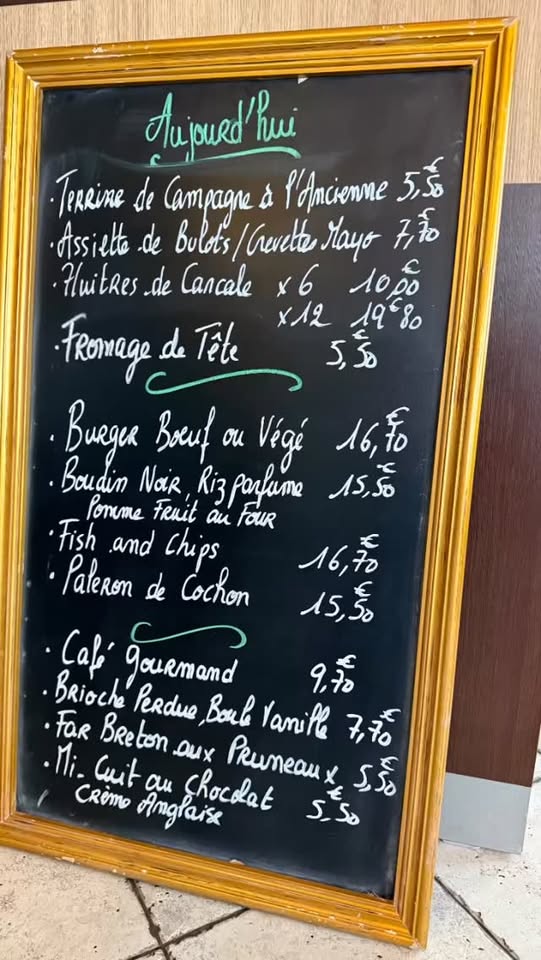 Aujourd'hui
· Terrine de Campagne à l'Ancienne 5,50€
· Assiette de Bulots/Crevettes Mayo 7,70€
· Huitres de Cancale x 6 10,00€
x 12 19€80
· Fromage de Tête 5,50€
· Burger Boeuf ou Végé 16,70€
· Boudin Noir, Riz parfumé 15,50€
Pomme Fruit au Four
· Fish and Chips 16,70€
· Paleron de Cochon 15,50€
· Café gourmand 9,70€
· Brioche Perdue, Boule Vanille 7,70€
· Far Breton aux Pruneaux 5,50€
· Mi-Cuit au Chocolat 5,50€
Crème Anglaise